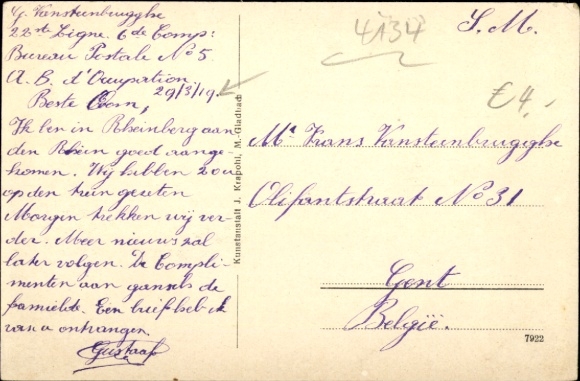 G. Vansteenbrugghe
22ste Ligne. 6de Comp:
Bureau Postale No 5.
A. B. d'Occupation
29/3/19.
Beste Oom,
Ik ben in Rheinberg aan
den Rhein goed aange-
komen. Wij hebben zoo
op den trein gezeten
Morgen trekken wij ver-
der. Meer nieuws zal
later volgen. De Compli-
menten aan gansch de
familie. Een brief heb ik
van u ontvangen.
Gustaaf
Kunstanstalt J. Krapohl, M.-Gladbach
S. M.
4134
€ 4,-
Mr Frans Vansteenbrugghe
Olifantstraat No 31
Gent
België.
7922